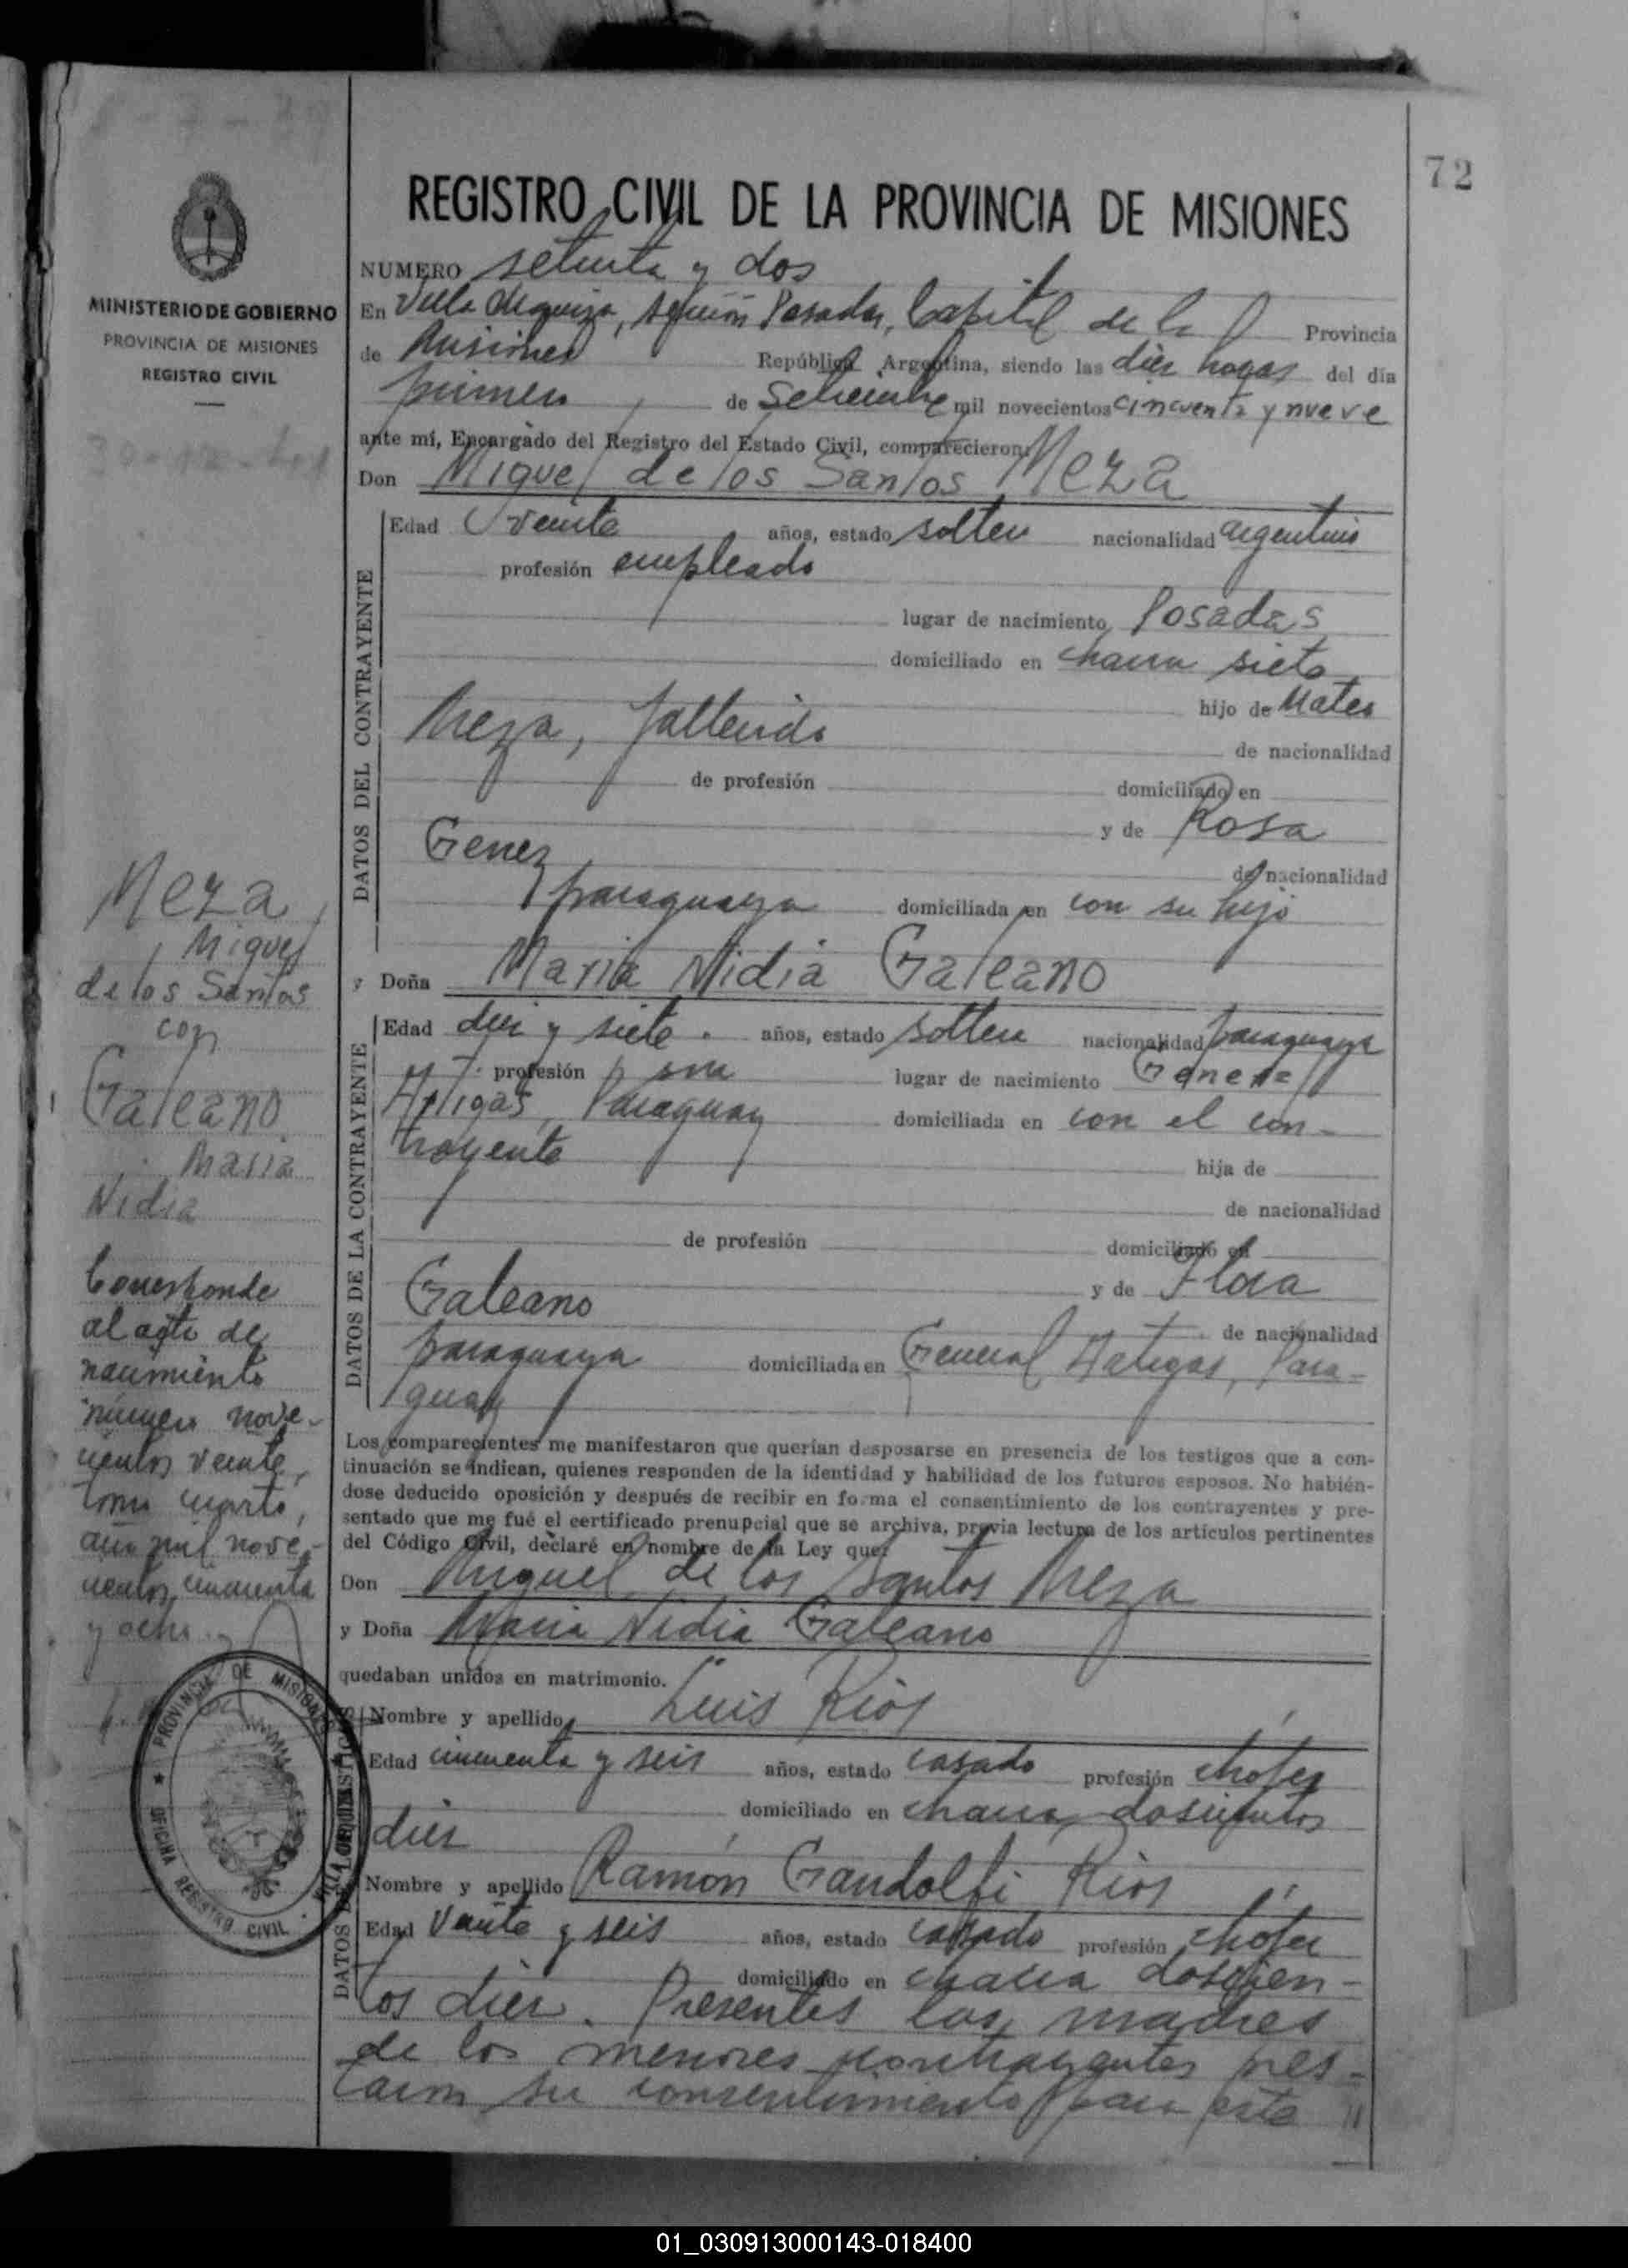 72
MINISTERIO DE GOBIERNO
PROVINCIA DE MISIONES
REGISTRO CIVIL
REGISTRO CIVIL DE LA PROVINCIA DE MISIONES
NUMERO setenta y dos
En Villa Urquiza, sección Posadas, Capital de la Provincia
de Misiones República Argentina, siendo las diez horas del día
primero de Setiembre mil novecientos cincuenta y nueve
ante mí, Encargado del Registro del Estado Civil, comparecieron:
Don Miguel de los Santos Meza
DATOS DEL CONTRAYENTE
Edad veinte años, estado soltero nacionalidad argentino
profesión empleado
lugar de nacimiento Posadas
domiciliado en chacra siete
hijo de Mateo
Meza, fallecido
de nacionalidad
de profesión domiciliado en
y de Rosa
Genez,
de nacionalidad
paraguaya domiciliada en con su hijo
y Doña Maria Nidia Galeano
DATOS DE LA CONTRAYENTE
Edad diez y siete años, estado soltera nacionalidad paraguaya
profesión lugar de nacimiento General
Artigas, Paraguay domiciliada en con el con-
trayente
hija de
de nacionalidad
de profesión domiciliado en
y de Flora
Galeano
de nacionalidad
paraguaya domiciliada en General Artigas, Para-
guay
Los comparecientes me manifestaron que querían desposarse en presencia de los testigos que a con-
tinuación se indican, quienes responden de la identidad y habilidad de los futuros esposos. No habién-
dose deducido oposición y después de recibir en forma el consentimiento de los contrayentes y pre-
sentado que me fué el certificado prenupcial que se archiva, previa lectura de los artículos pertinentes
del Código Civil, declaré en nombre de la Ley que:
Don Miguel de los Santos Meza
y Doña Maria Nidia Galeano
quedaban unidos en matrimonio.
Nombre y apellido Luis Ríos
Edad cincuenta y seis años, estado casado profesión chofer
domiciliado en chacra doscientos
diez
Nombre y apellido Ramón Gandolfi Rios
Edad veinte y seis años, estado casado profesión chofer
domiciliado en chacra doscien-
tos diez. Presentes las madres
de los menores contrayentes pres-
taron su consentimiento para este
Meza,
Miguel
de los Santos
con
Galeano
Maria
Nidia
Corresponde
al acta de
nacimiento
número nove-
cientos veinte,
tomo cuarto,
año mil nove-
cientos cincuenta
y ocho
PROVINCIA DE MISIONES
OFICINA REGISTRO CIVIL
01_030913000143-018400